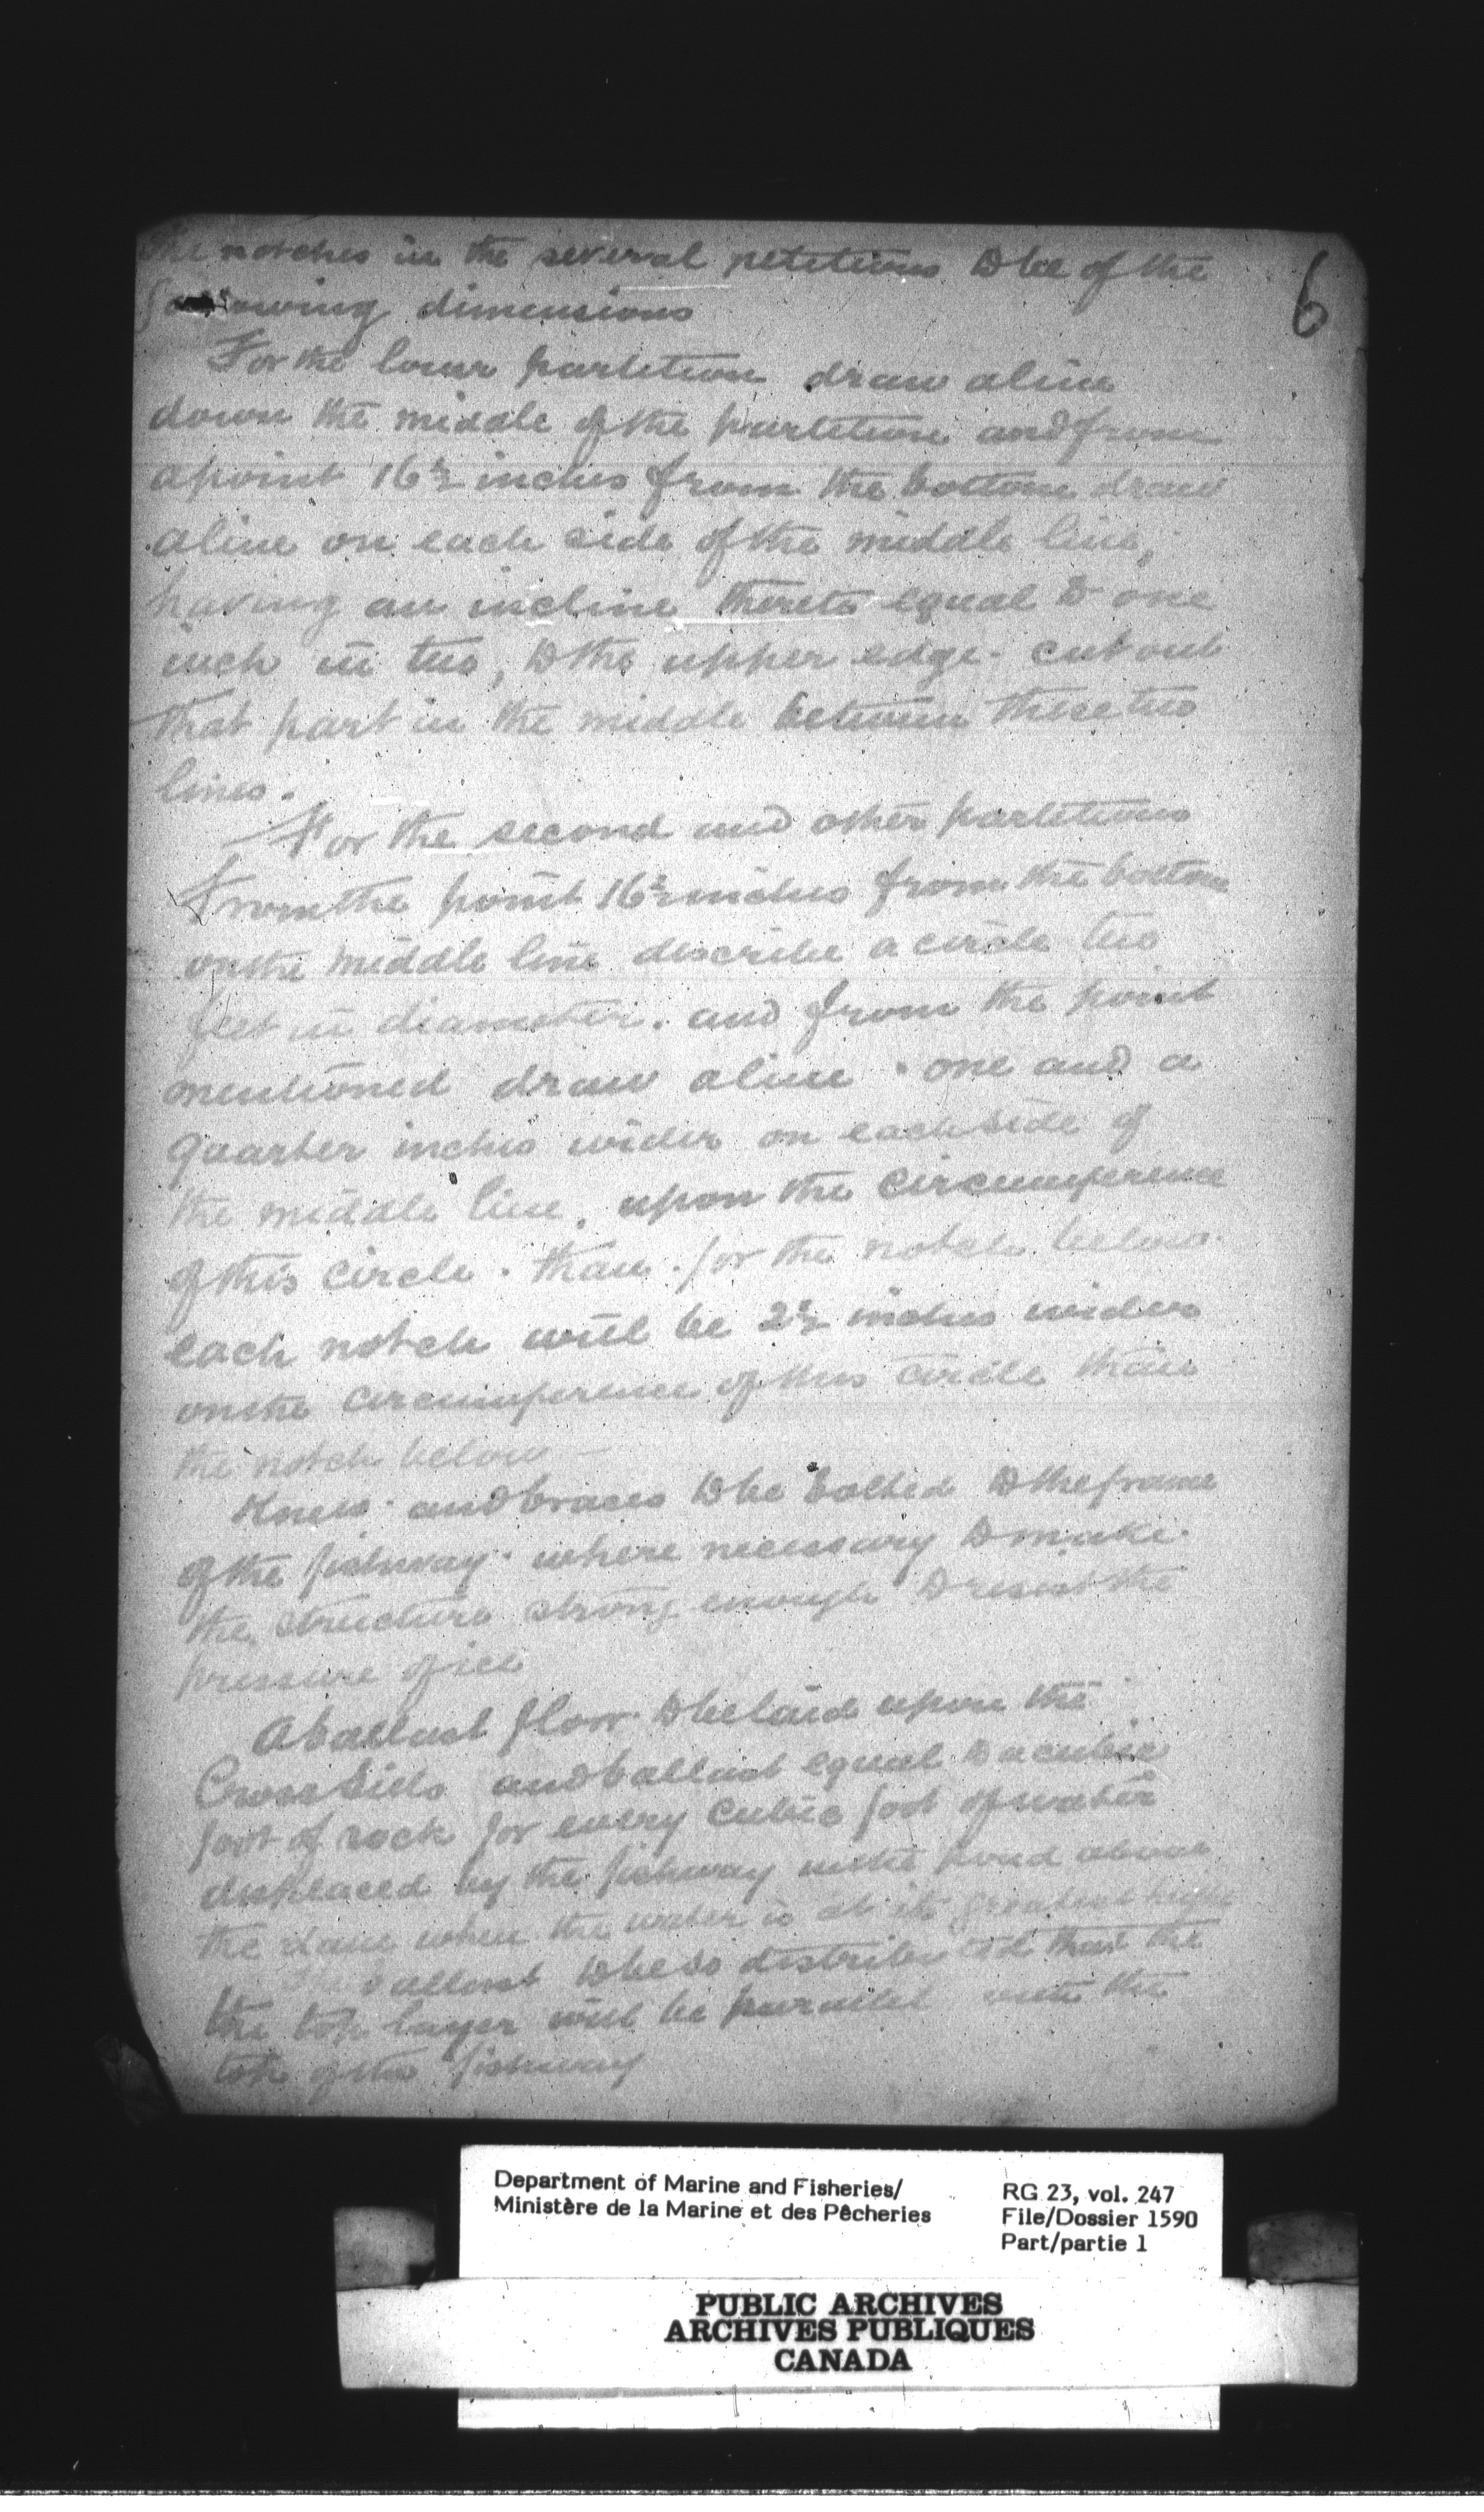 6
The notches in the several petetions to be of the
following dimensions
For the lower partetion draw a line
down the middle of the partetion and from
a point 16½ inches from the bottom draw
a line on each side of the middle line,
having an incline thereto equal to one
inch in two, to the upper edge. cut out
that part in the middle between these two
lines.
For the second and other partetions
From the point 16½ inches from the bottom
on the middle line describe a circle two
feet in diameter. and from the point
mentioned draw a line one and a
quarter inches wider on each side of
the middle line, upon the circumference
of this circle. than for the notch below.
each notch will be 2½ inches wider
on the circumference of this circle than
the notch below –
Knees and braces to be bolted to the frame
of the fishway where necessary to make
the structure strong enough to resist the
pressure of ice
A ballast floor to be laid upon the
Cross Sills and ballast equal to a cubic
foot of rock for every cubic foot of water
displaced by the fishway in the pond above
the dam when the water is at its greatest hight
The ballast to be so distributed that the
the top layer will be parallel with the
top of the fishway
Department of Marine and Fisheries/
Ministère de la Marine et des Pêcheries
RG 23, vol. 247
File/Dossier 1590
Part/partie 1
PUBLIC ARCHIVES
ARCHIVES PUBLIQUES
CANADA